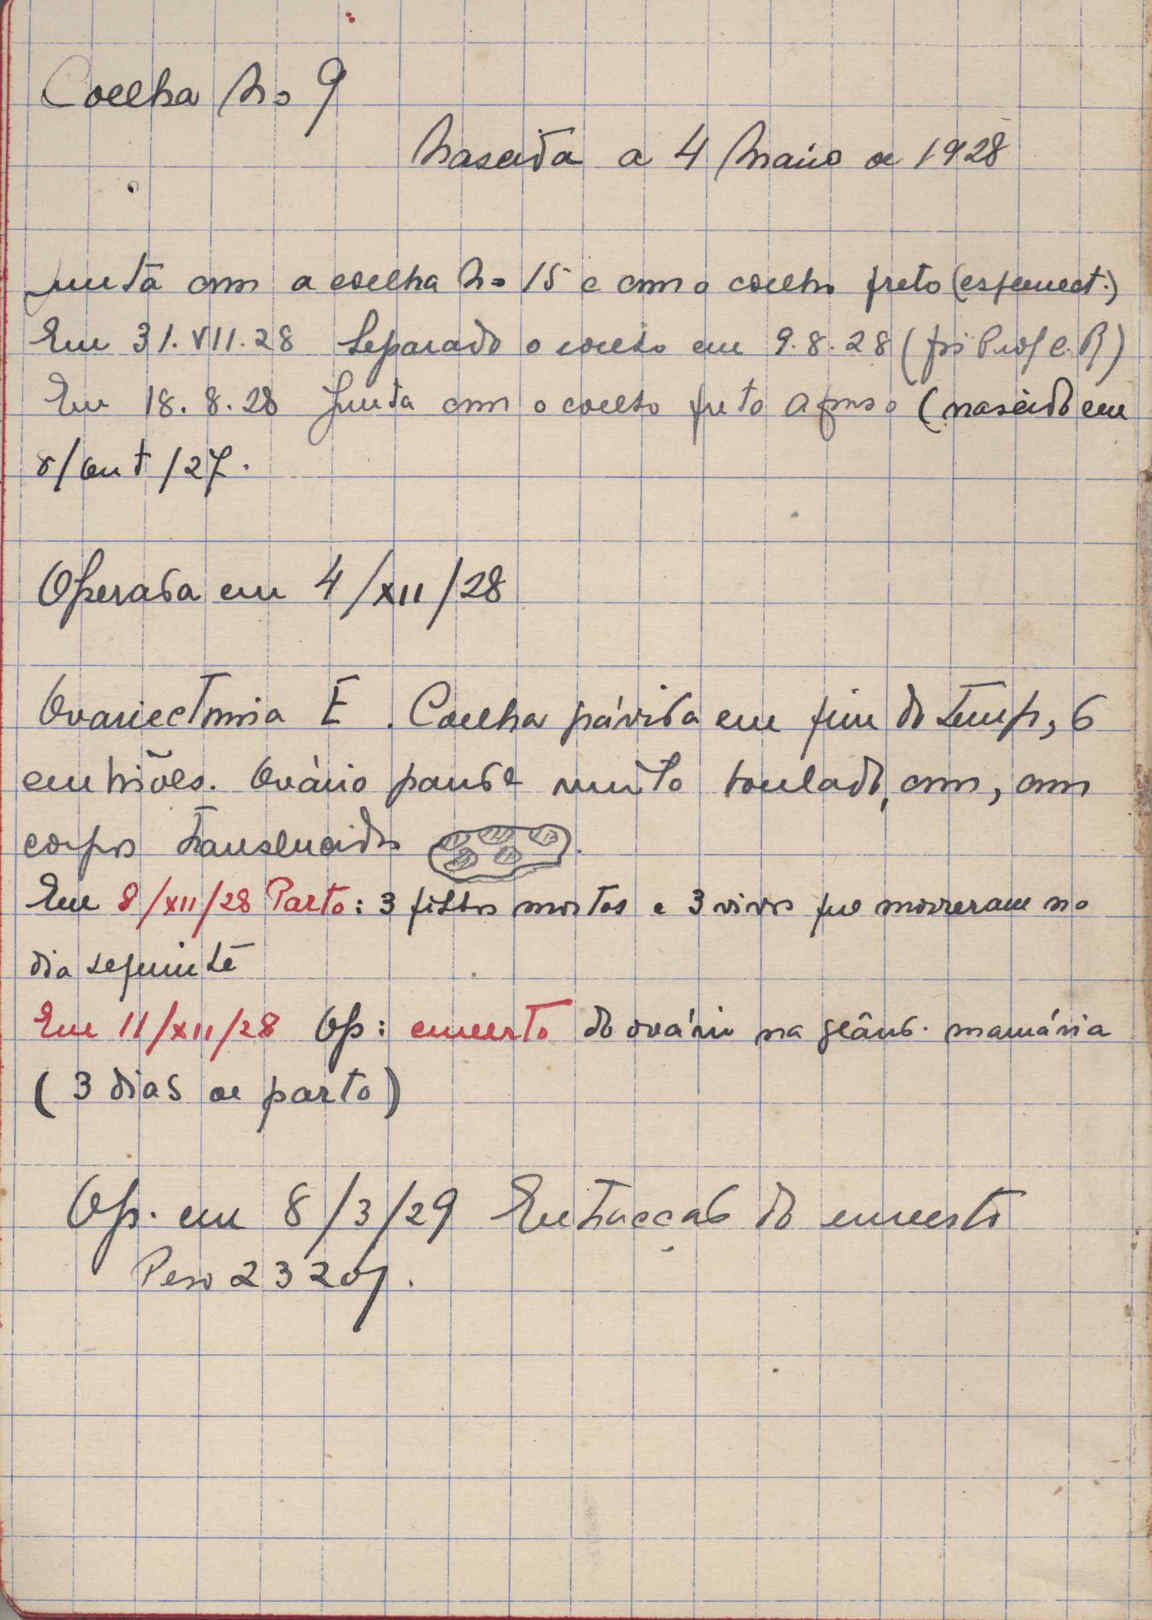 Coelha No 9
Nascida a 4 Maio de 1928
Junta com a coelha No 15 e com o coelho preto (esfemect.)
Em 31.VII.28 Separado o coelho em 9.8.28 (foi Prof C.R)
Em 18.8.28 Junta com o coelho preto Afonso (nascido em
8/Out/27.
Operada em 4/XII/28
Ovariectomia E. Coelha pávida em fim do temp, 6
embriões. Ovário grande muito boulado, com, com
corpos translucidos
Em 8/XII/28 Parto: 3 filhos mortos e 3 vivos que morreram no
dia seguinte
Em 11/XII/28 Op: enxerto do ovário na glând. mamária
(3 dias de parto)
Op. em 8/3/29 Extracção do enxerto
Peso 2320g.